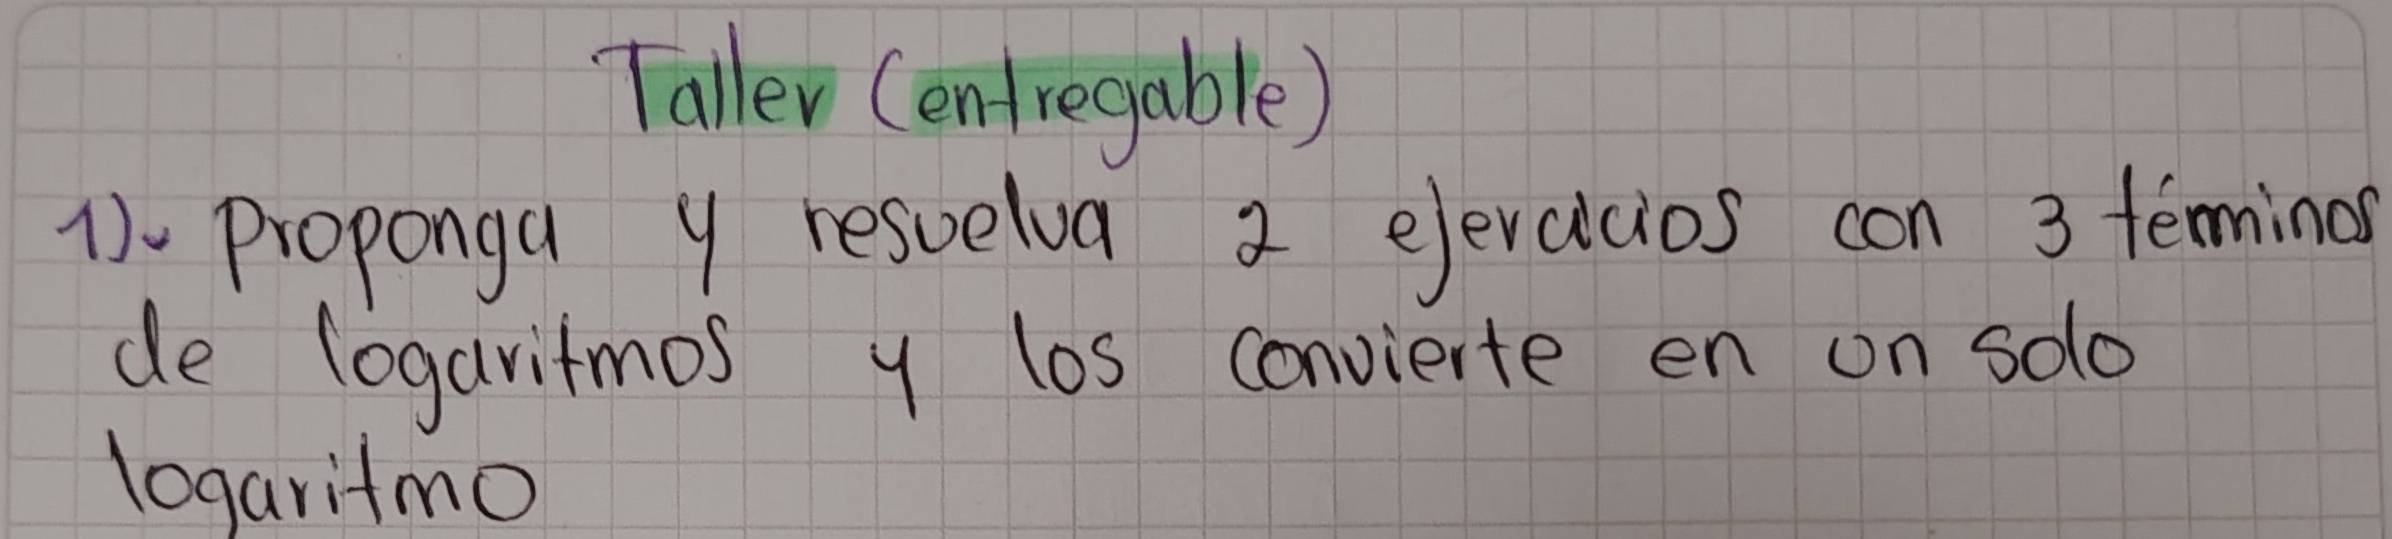 Taller (entregable)
1). Proponga y resuelva 2 ejercicios con 3 términos
de logaritmos y los convierte en un solo
logaritmo